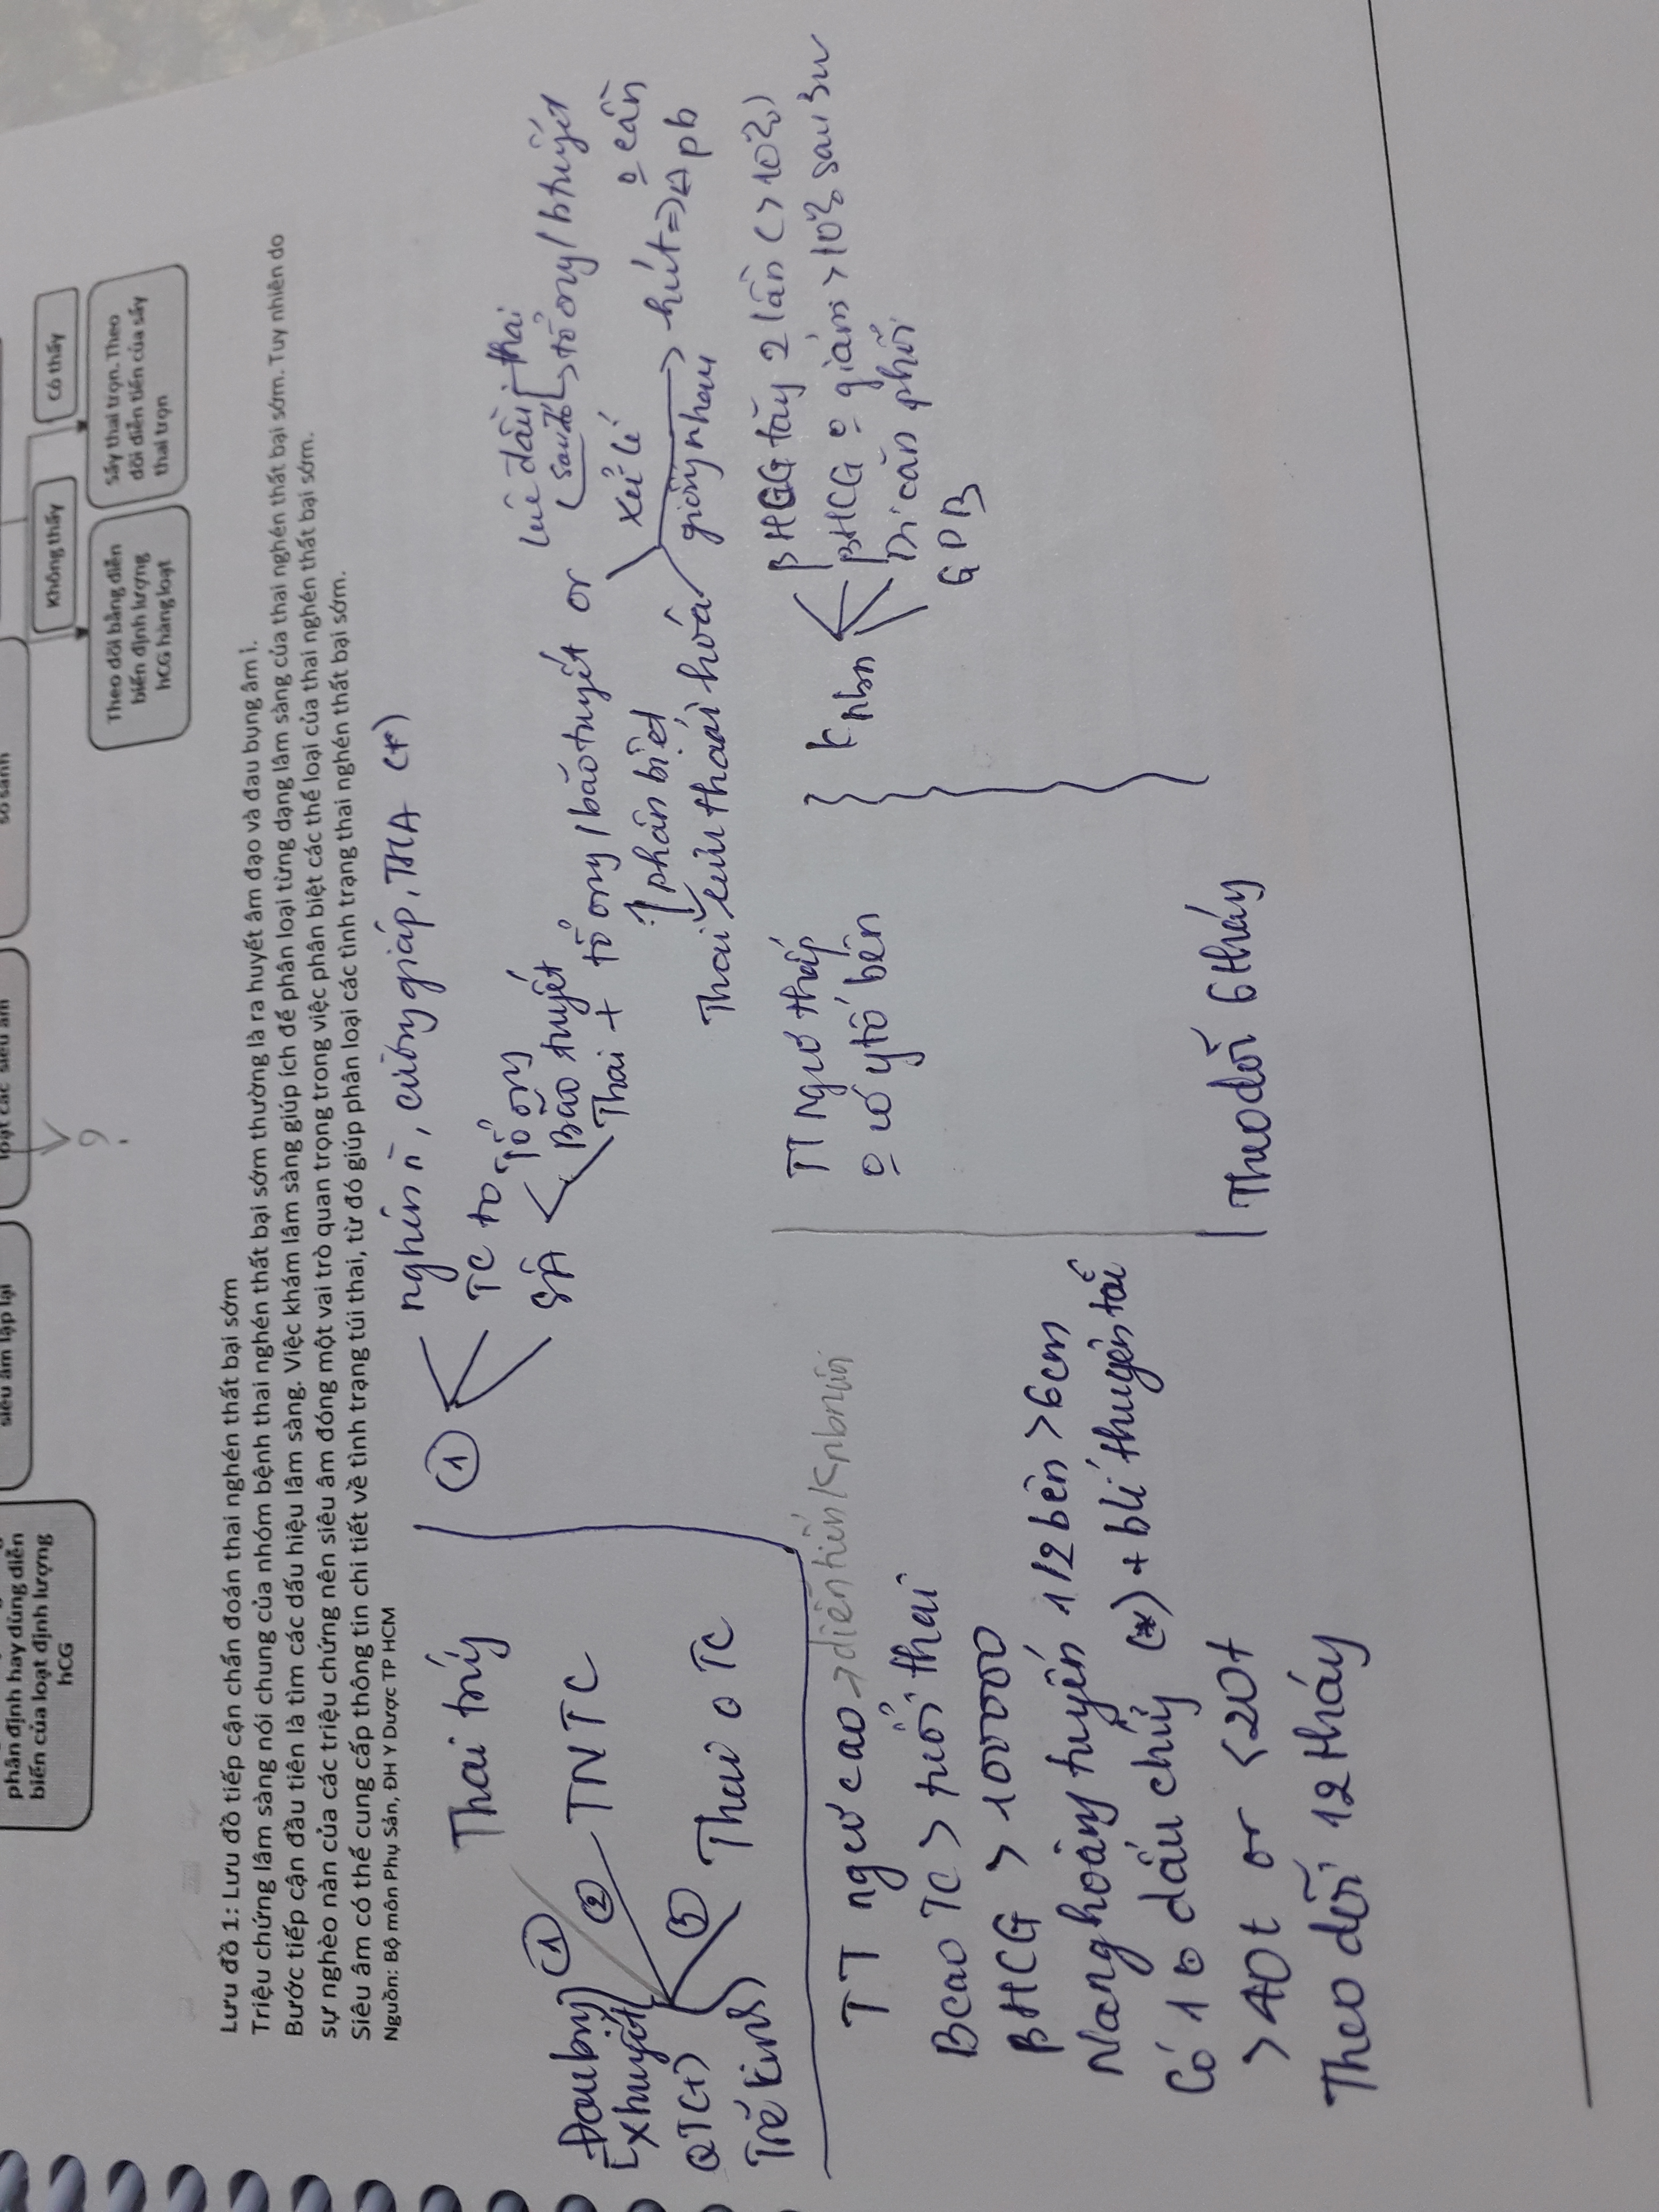 phân định hay dùng diễn
biến của loạt định lượng
hCG
siêu âm lặp lại
loạt các siêu âm
so sánh
?
Không thấy
Có thấy
Theo dõi bằng diễn
biến định lượng
hCG hàng loạt
Sẩy thai trọn. Theo
dõi diễn tiến của sẩy
thai trọn
Lưu đồ 1: Lưu đồ tiếp cận chẩn đoán thai nghén thất bại sớm
Triệu chứng lâm sàng nói chung của nhóm bệnh thai nghén thất bại sớm thường là ra huyết âm đạo và đau bụng âm ỉ.
Bước tiếp cận đầu tiên là tìm các dấu hiệu lâm sàng. Việc khám lâm sàng giúp ích để phân loại từng dạng lâm sàng của thai nghén thất bại sớm. Tuy nhiên do
sự nghèo nàn của các triệu chứng nên siêu âm đóng một vai trò quan trọng trong việc phân biệt các thể loại của thai nghén thất bại sớm.
Siêu âm có thể cung cấp thông tin chi tiết về tình trạng túi thai, từ đó giúp phân loại các tình trạng thai nghén thất bại sớm.
Nguồn: Bộ môn Phụ Sản, ĐH Y Dược TP HCM
Thai trứng
Đau bụng
Xhuyết
QT(+)
Trễ kinh
①
② TNTC
③
Thai o TC
①
nghén n, cường giáp, THA (*)
TC to
SÂ
Tổ ong
Bão tuyết
Thai + tổ ong / bão tuyết or
lúc đầu: thai
sau đó → tổ ong / b tuyết
↑ phân biệt
Thai lưu thoái hóa
xử lí
giống nhau
hút => o cần
Δ pb
TT nguy cơ cao → diễn tiến K nbn
Bcao TC > tuổi thai
βHCG > 100000
Nang hoàng tuyến 1/2 bên > 6cm
Có 1 dấu chứng (*) + b lí thuyên tắc
> 40t or < 20t
Theo dõi 12 tháng
TT nguy cơ thấp
o có ytố bên
Theo dõi 6 tháng
K nbn
βHCG tăng 2 lần (> 10%)
βHCG o giảm > 10% sau 3w
Di căn phổi
GPB